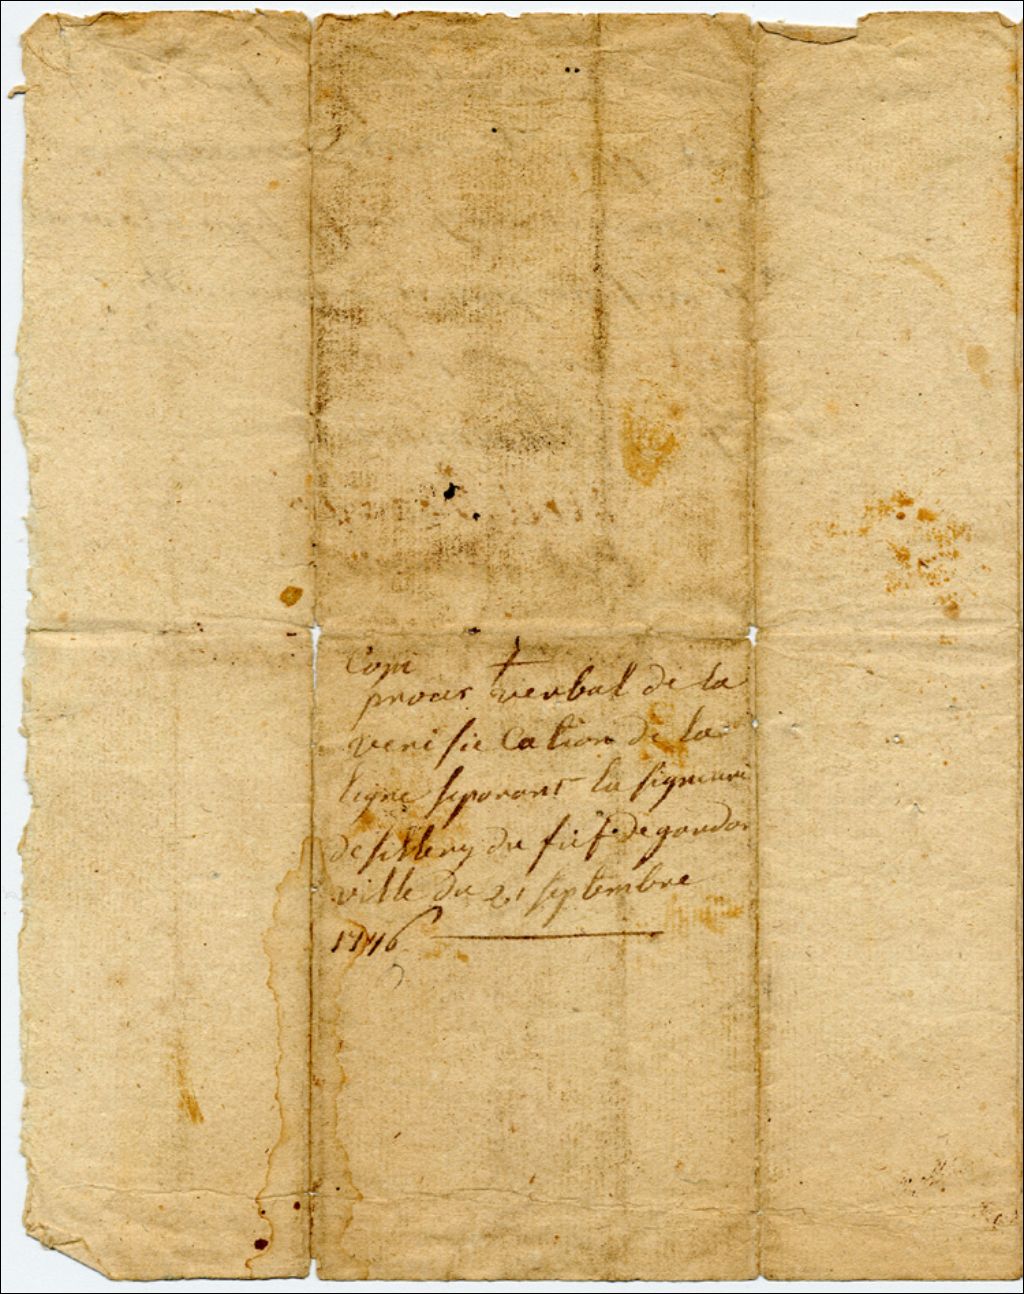 Copi
proces verbal de la
verification de la
ligne separant la signeuri
de sillery du fief de gaudar
ville du 21 septembre
1776